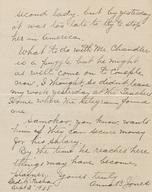 second lady. but by yesterday
it was too late to try to stop
her in America.
What to do with Mr Chandler
is a puzzle but he might
as well come on to
now, I thought, so didn't leave
my work yesterday at the Teachers
Home where the telegram found
me.
Samokov you know, wants
him if they can secure money
for his salary.
By the time he reaches here
things may have become
Yours truly
Anna B. Jones